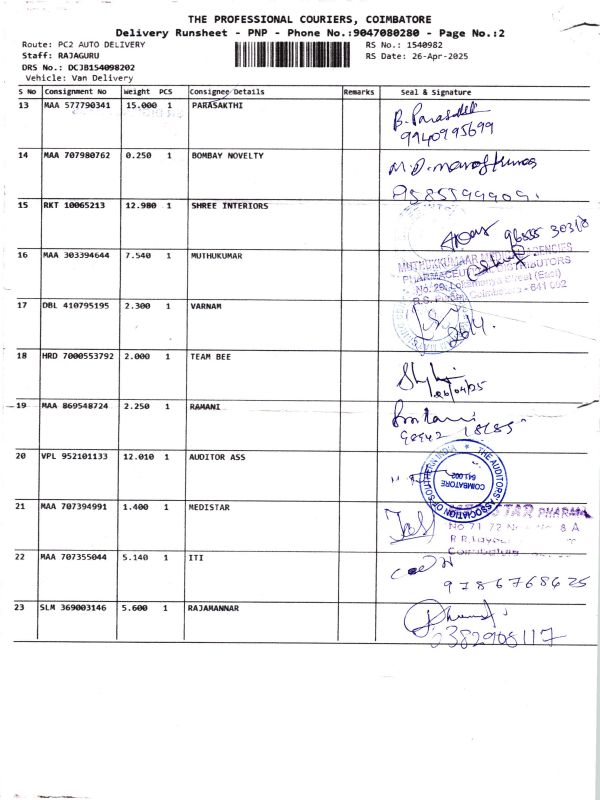 THE PROFESSIONAL COURIERS, COIMBATORE
Delivery Runsheet - PNP - Phone No.:9047080280 - Page No.:2
Route: PC2 AUTO DELIVERY RS No.: 1540982
Staff: RAJAGURU RS Date: 26-Apr-2025
DRS No.: DCJB154098202
Vehicle: Van Delivery
S No Consignment No Weight PCS Consignee Details Remarks Seal & Signature
13 MAA 577790341 15.000 1 PARASAKTHI
9940995699
14 MAA 707980762 0.250 1 BOMBAY NOVELTY
9585599909.
15 RKT 10065213 12.980 1 SHREE INTERIORS
16 MAA 303394644 7.540 1 MUTHUKUMAR
MUTHUKKUMAAR AGENCIES
PHARMACEUTICAL DISTRIBUTORS
17 DBL 410795195 2.300 1 VARNAM
26/4.
18 HRD 7000553792 2.000 1 TEAM BEE
26/04/25
19 MAA 869548724 2.250 1 RAMANI
20 VPL 952101133 12.010 1 AUDITOR ASS
THE AUDITORS ASSOCIATION OF SOUTHERN INDIA
COIMBATORE
641 002
21 MAA 707394991 1.400 1 MEDISTAR
PHARMA
22 MAA 707355044 5.140 1 ITI
9786768625
23 SLM 369003146 5.600 1 RAJAMANNAR